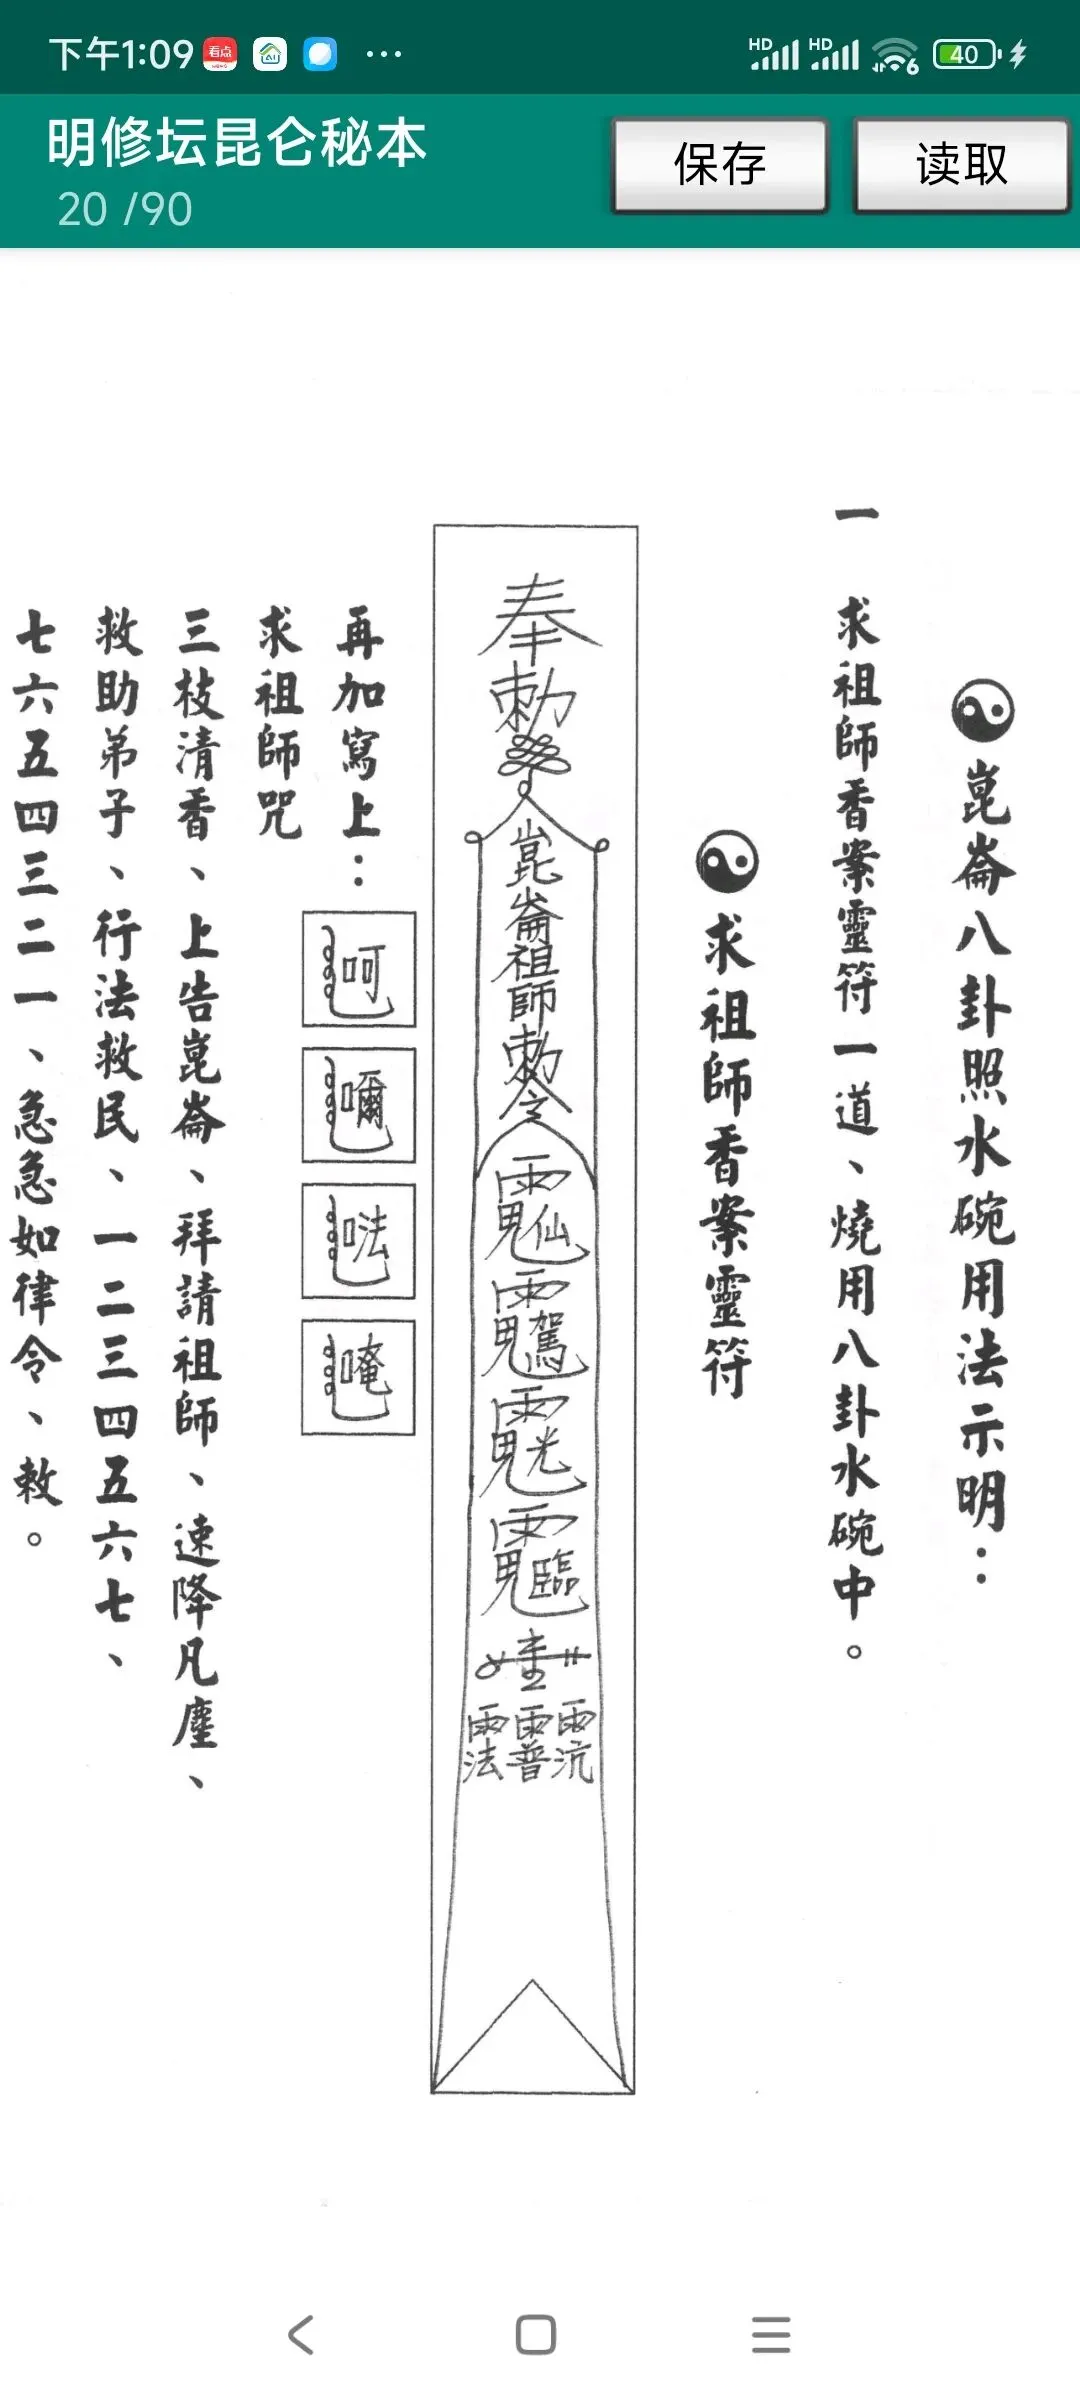 下午1:09
看点
HD HD 6 40
明修坛昆仑秘本
20 /90
保存
读取
崑崙八卦照水碗用法示明：
一 求祖師香案靈符一道、燒用八卦水碗中。
求祖師香案靈符
奉勅
崑崙祖師勅令
仙
駕
光
臨
法 普 沆
再加寫上：
呵
嚩
㗊
唵
求祖師咒
三枝清香、上告崑崙、拜請祖師、速降凡塵、
救助弟子、行法救民、一二三四五六七、
七六五四三二一、急急如律令、敕。